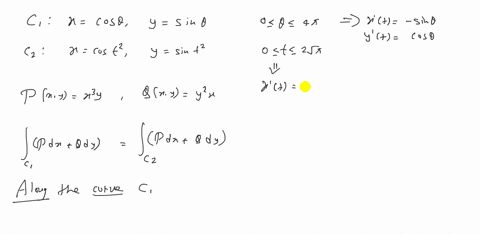 C₁: x = cosθ, y = sinθ 0 ≤ θ ≤ 4π ⇒ x'(t) = -sinθ
y'(t) = cosθ
C₂: x = cos t², y = sin t² 0 ≤ t ≤ 2√π
⇓
x'(t) =
P(x,y) = x³y, Q(x,y) = y²x
∫_C₁ (Pdx + Qdy) = ∫_C₂ (Pdx + Qdy)
Along the curve C₁